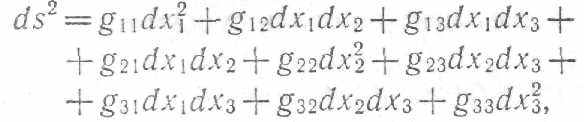 ds² = g₁₁dx₁² + g₁₂dx₁dx₂ + g₁₃dx₁dx₃ +
+ g₂₁dx₁dx₂ + g₂₂dx₂² + g₂₃dx₂dx₃ +
+ g₃₁dx₁dx₃ + g₃₂dx₂dx₃ + g₃₃dx₃²,